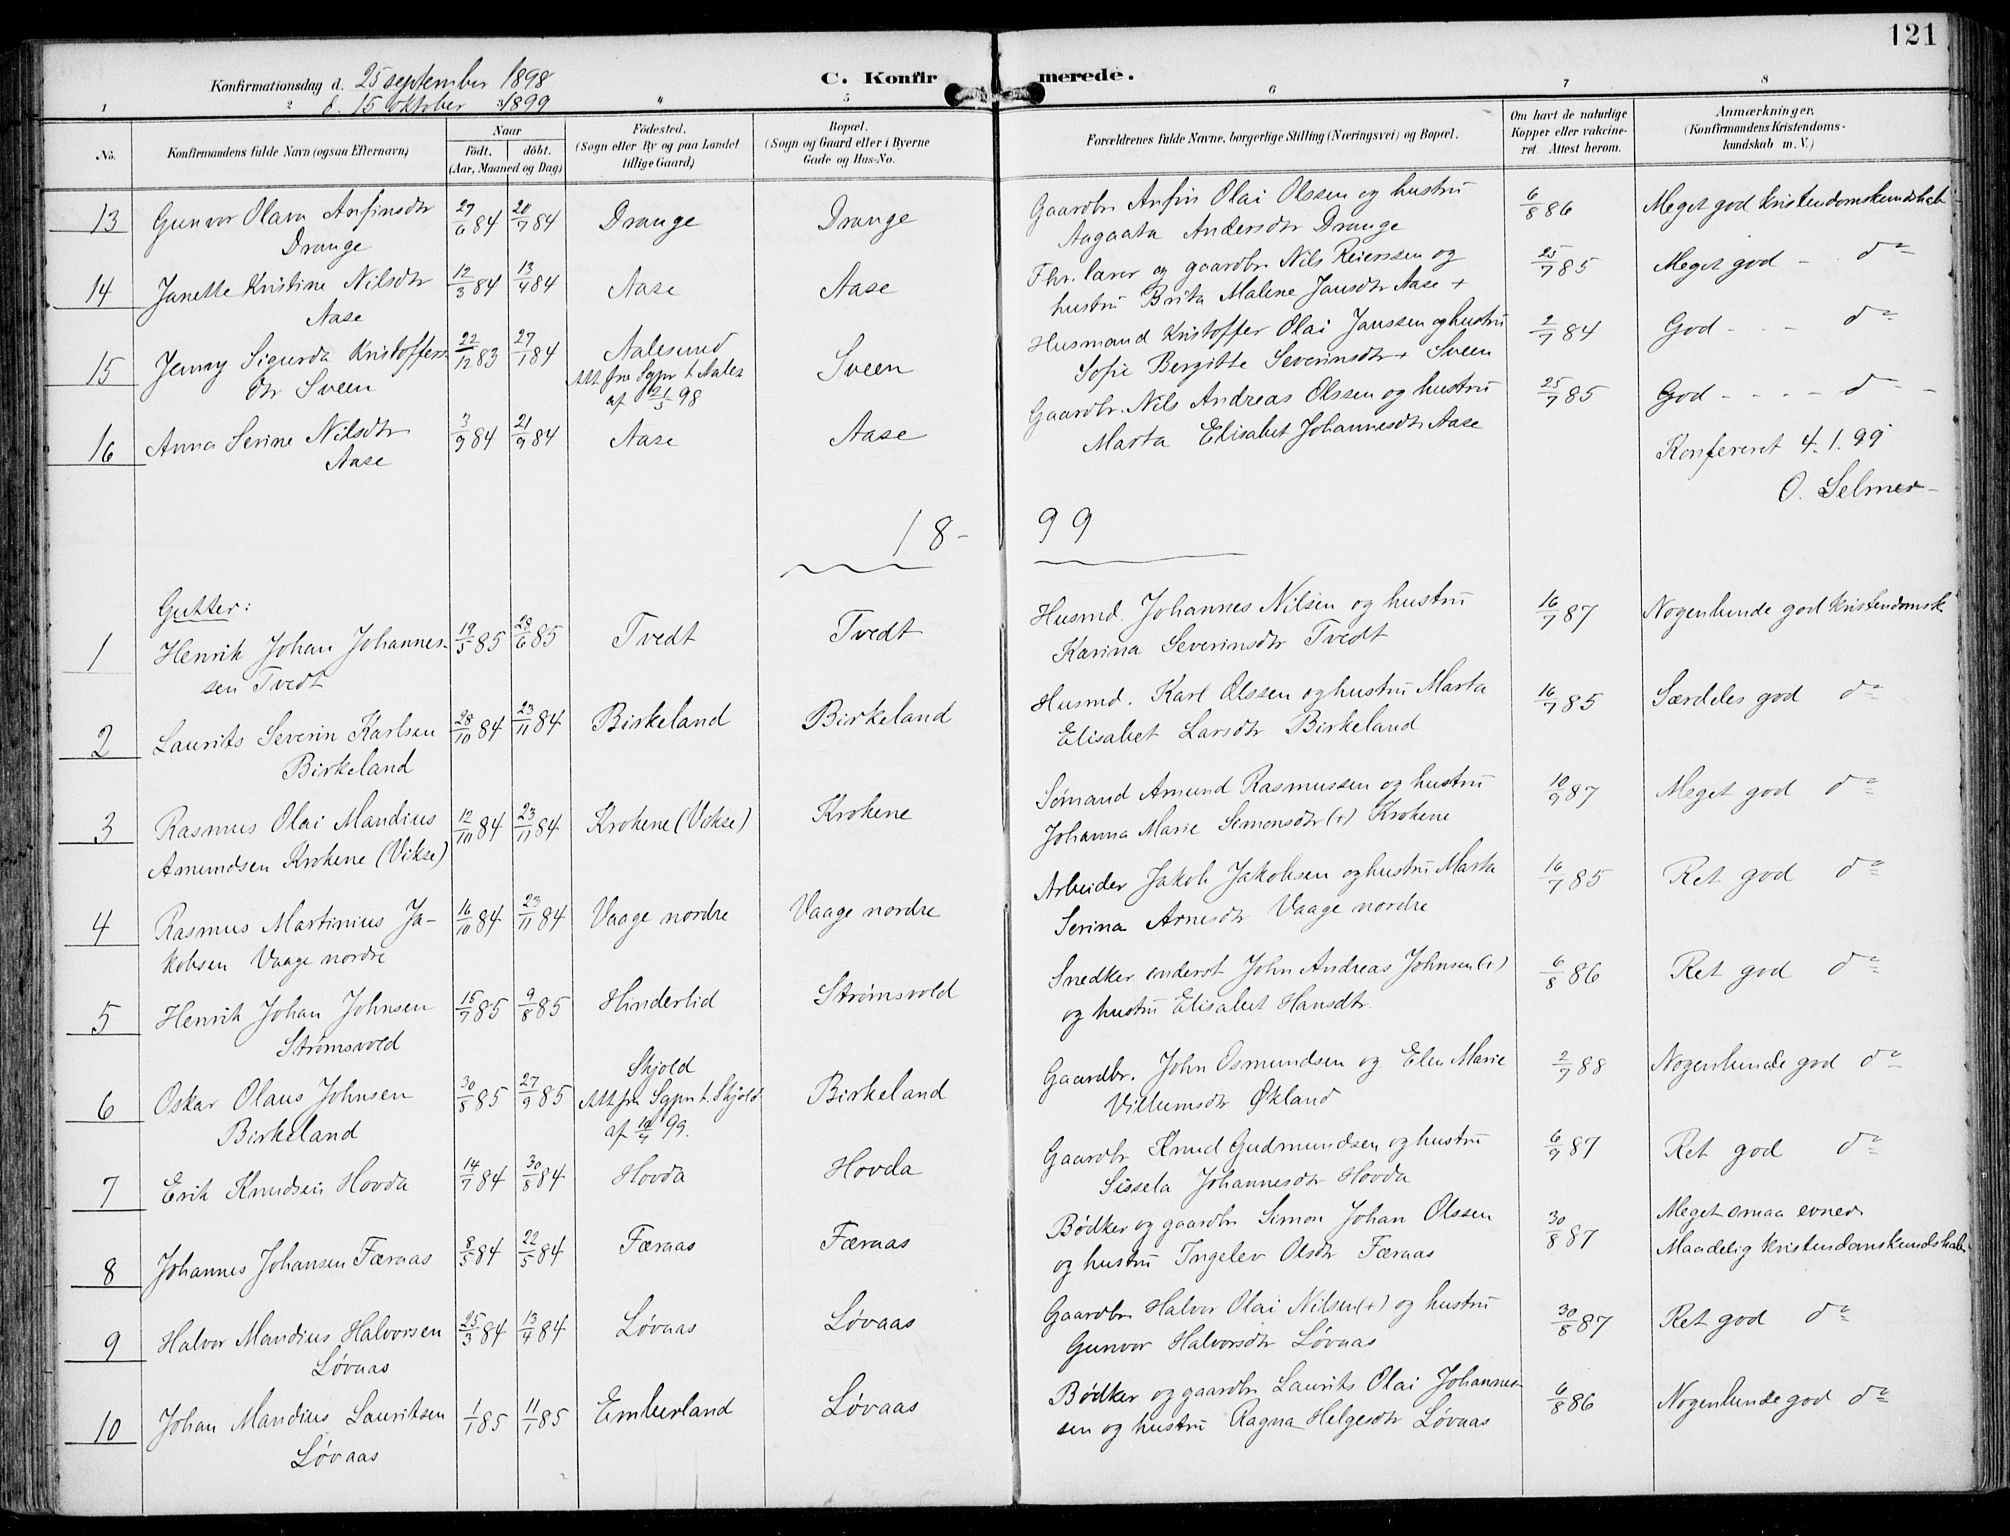 121
Konfirmationsdag d. 25 september 1898
d. 15 oktober 1899
C. Konfirmerede.
1 2 3 " 5 6 7 8
No.
Konfirmandens fulde Navn (ogsaa Efternavn)
Naar
Födt. döbt.
(Aar, Maaned og Dag)
Födested.
(Sogn eller By og paa Landet
tillige Gaard)
Bopæl.
(Sogn og Gaard eller i Byerne
Gade og Hus-No.
Forældrenes fulde Navne, borgerlige Stilling (Næringsvei) og Bopæl.
Om havt de naturlige
Kopper eller vakcine-
ret. Attest herom.
Anmærkninger,
(Konfirmandens Kristendoms-
kundskab m. V.)
13 Gunvor Olava Anfinsdtr 27/6 84 20/7 84 Drange Drange Gaardbr. Anfin Olai Olssen og hustru 6/8 86 Meget god Kristendomskundskab
Drange Aagaata Andersdtr Drange
14 Janette Kristine Nilsdtr 12/3 84 13/4 84 Aase Aase Fhr. lærer og gaardbr. Nils Reierssen og 25/7 85 Meget god - do
Aase hustru Brita Malene Jansdtr Aase +
15 Jenny Sigurda Kristoffers- 22/12 83 27/1 84 Aalesund Sveen Husmand Kristoffer Olai Janssen og hustru 2/7 84 God - - - do
dtr Sveen Att fra Sgpr t. Aales. Sofie Bergitte Severinsdtr + Sveen
af 21/5 98
16 Anna Serine Nilsdtr 3/9 84 21/9 84 Aase Aase Gaardbr. Nils Andreas Olssen og hustru 25/7 85 God - - - - do -
Aase Marta Elisabet Johannesdtr Aase
Konfereret 4.1.99
O. Selmer
18 - 99
Gutter:
1 Henrik Johan Johannes- 19/5 85 28/6 85 Tvedt Tvedt Husmd. Johannes Nilsen og hustru 16/7 87 Nogenlunde god Kristendomsk
sen Tvedt Karina Severinsdtr Tvedt
2 Laurits Severin Karlsen 28/10 84 23/11 84 Birkeland Birkeland Husmd. Karl Olssen og hustru Marta 16/7 85 Særdeles god do
Birkeland Elisabet Larsdtr Birkeland
3 Rasmus Olai Mandius 12/10 84 23/11 84 Krokene (Vikse) Krokene Sømand Amund Rasmussen og hustru 10/9 87 Meget god do
Amundsen Krokene (Vikse) Johanna Marie Simonsdtr (+) Krokene
4 Rasmus Martinius Ja- 16/10 84 23/11 84 Vaage nordre Vaage nordre Arbeider Jakob Jakobsen og hustru Marta 16/7 85 Ret god do
kobsen Vaage nordre Serina Arnesdtr Vaage nordre
5 Henrik Johan Johnsen 15/7 85 9/8 85 Hinderlid Strømsvold Snedker John Andreas Johnsen (+) 6/8 86 Ret god do
Strømsvold og hustru Elisabet Hansdtr.
6 Oskar Olaus Johnsen 30/8 85 27/9 85 Skjold Birkeland Gaardbr. John Osmundsen og Elen Marie 2/9 88 Nogenlunde god do
Birkeland Att fra Sgpr t. Skjold Villumsdtr Økland
af 99.
7 Erik Knudsen Hovda 14/7 84 30/8 84 Hovda Hovda Gaardbr Knud Gudmundsen og hustru 6/9 87 Ret god do
Sissela Johannesdtr Hovda
8 Johannes Johansen Færaas 8/5 84 22/5 84 Færaas Færaas Bødker og gaardbr Simon Johan Olssen 30/8 87 Meget smaa evner
og hustru Ingelev Olsdtr Færaas Maadelig Kristendomskundskab
9 Halvor Mandius Halvorsen 25/3 84 13/4 84 Løvaas Løvaas Gaardbr Halvor Olai Nilsen (+) og hustru 30/8 87 Ret god do
Løvaas Gunvor Halvorsdtr Løvaas
10 Johan Mandius Lauritsen 1/1 85 11/1 85 Emberland Løvaas Bødker og gaardbr Laurits Olai Johannes- 6/8 86 Nogenlunde god do
Løvaas sen og hustru Ragna Helgesdtr Løvaas